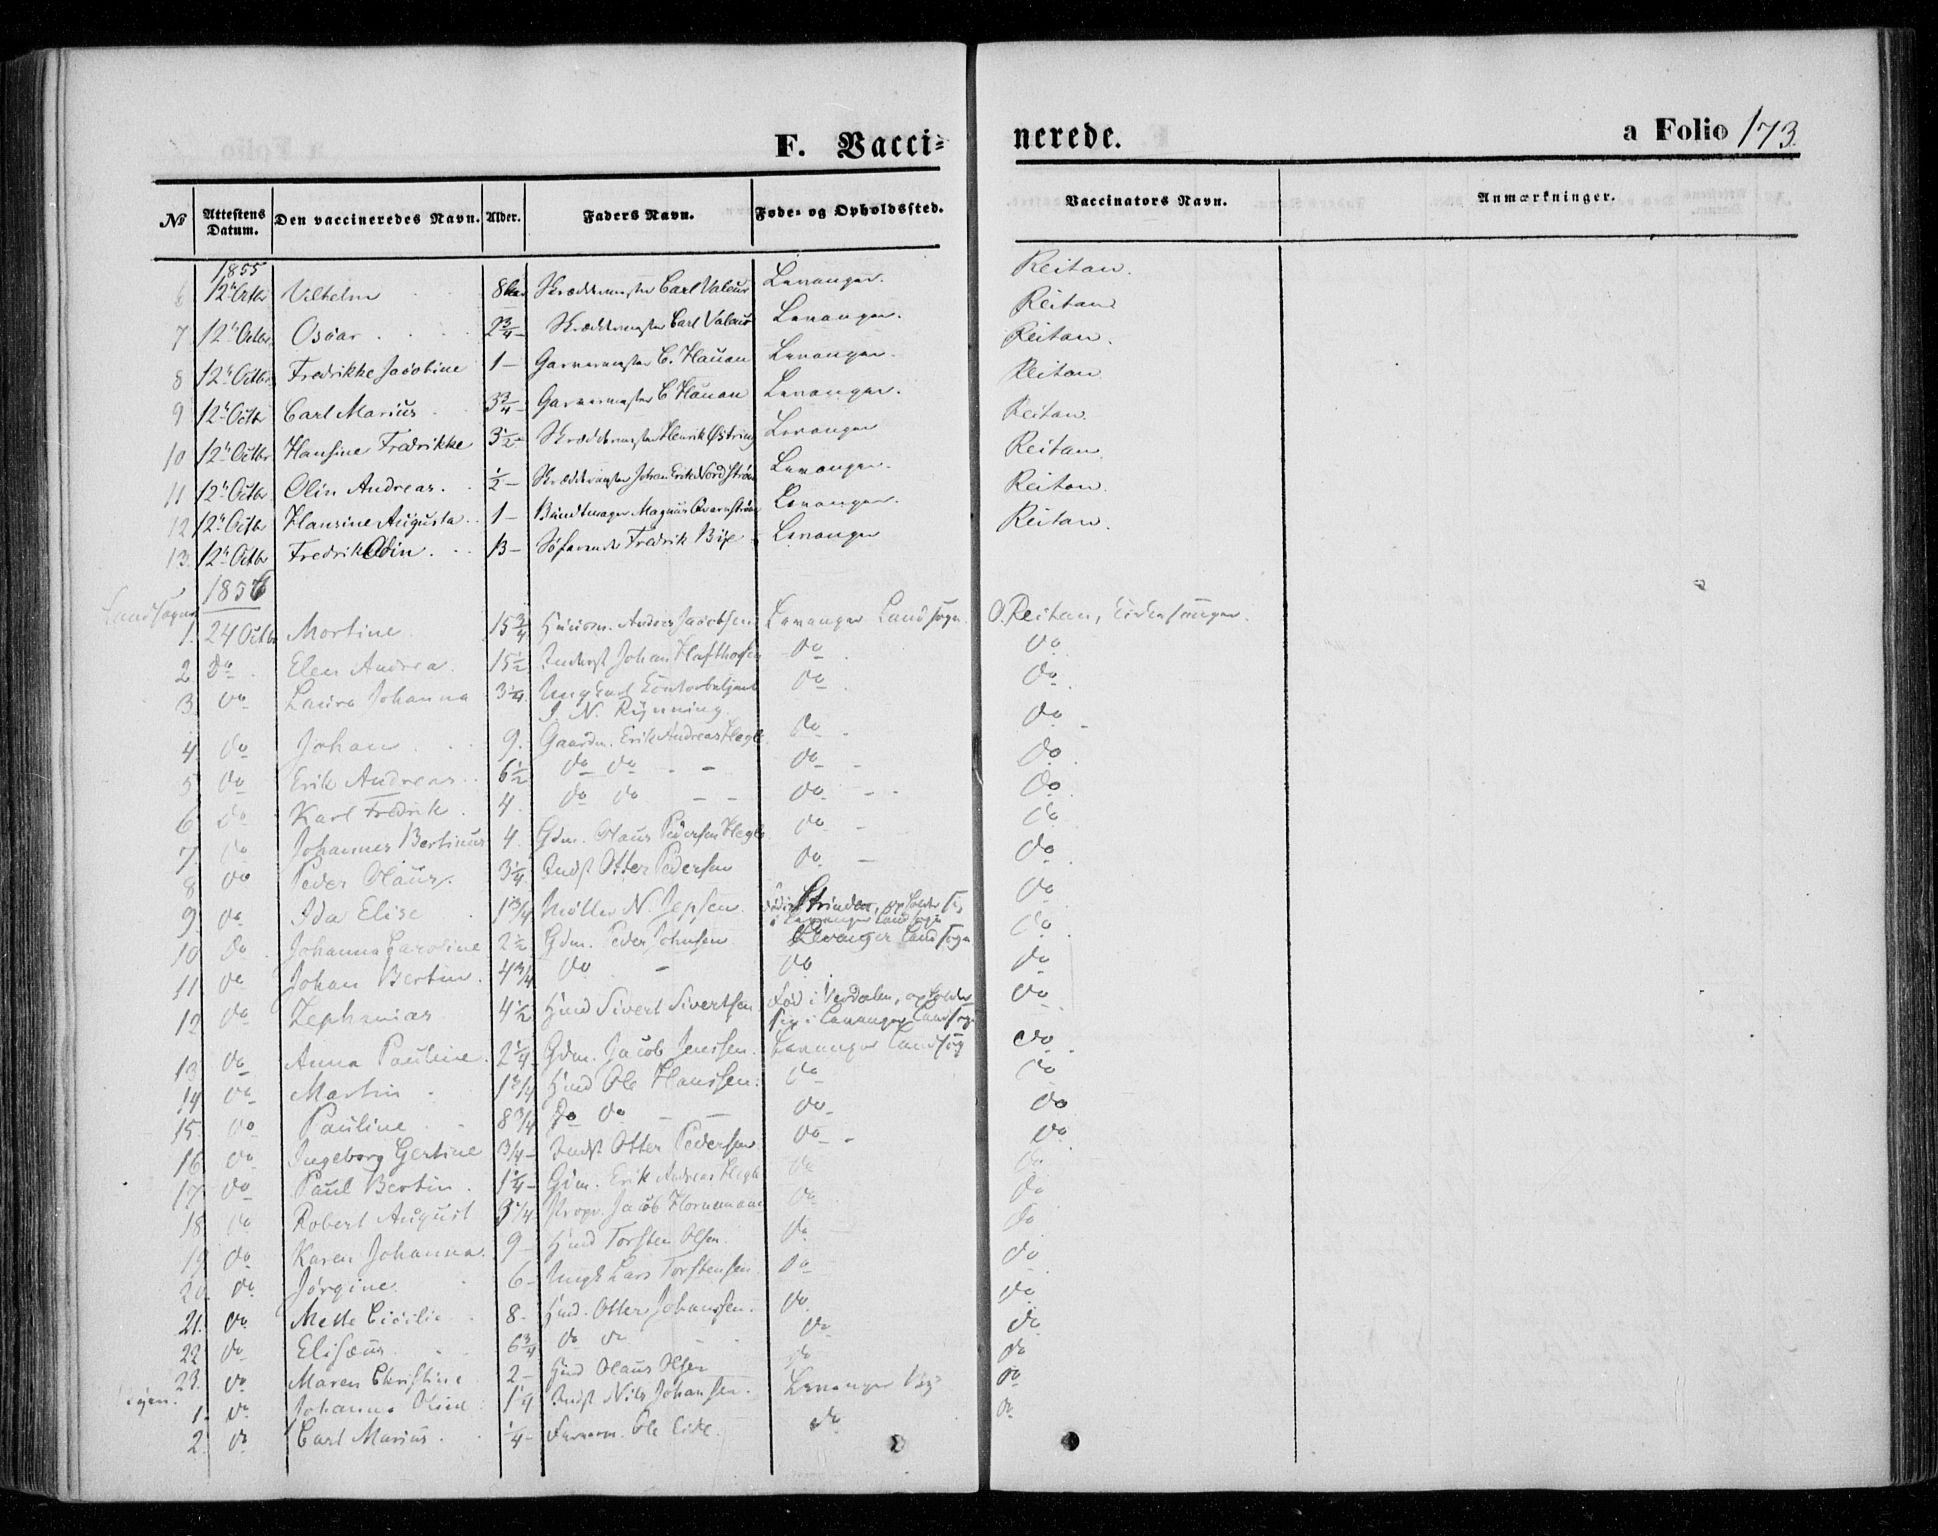 F. Vacci-
nerede.
a Folio 173.
№ Attestens Datum. Den vaccineredes Navn. Alder. Faders Navn. Føde- og Opholdssted. Vaccinators Navn. Anmærkninger.
1855
6 12te Octbr Vilhelm 8 Skræddermester Carl Valeur Levanger. Reitan.
7 12te Octbr Oscar. 2 3/4 - Skræddermester Carl Valeur Levanger. Reitan
8 12te Octbr Fredrikke Jacobine 1 - Garvermester C. Hauan Levanger. Reitan.
9 12te Octbr Carl Marius 3 3/4 - Garvermester C Hauan Levanger. Reitan
10 12te Octbr Hansine Fredrikke 3 1/2 - Skræddermester Henrik Østring Levanger Reitan.
11 12te Octbr Olin Andreas. 1/2 - Skræddermester Johan Erik Nordstrøm Levanger. Reitan.
12 12te Octbr Hansine Augusta 1 - Bundtmager Magnus Levanger. Reitan.
13. 12te Octbr Fredrik Odin. 13 - Søfarende Fredrik Levanger Reitan.
1856
Landsogn
1. 24 Octbr Martine 15 3/4 Huusm. Anders Jacobsen Levanger Landsogn O. Reitan, Kirkesanger.
2. do Elen Andrea. 15 1/2 Inderst Johan do do
3. do Laura Johanna 3 1/4 Ungkarl Contorbetjent do do
J. N. Rynning.
4. do Johan 9. Gaardm. Erik Andreas do do
5 do Erik Andreas 6 1/2 do do do do
6 do Karl Fredrik. 4. do do do do
7. do Johannes Bertinus 4 Gdm. Olaus Pedersen do do
8 do Peder Olaus. 3 1/4 Indst Otter Pedersen do do
9 do Ida Elise 1 3/4 Møller N. Jepsen. Strinden, opholder sig
i Levanger Landsogn do
10 do Johanna Caroline 2 1/2 Gdm. Peder Johnsen Levanger Landsogn do
11 do Johan Bertin. 4 3/4 do do do
12 do Zephanias 4 1/2 Hmd Sivert Sivertsen Fød i Verdalen, opholder
sig i Levanger Landsogn do
13 do Anna Pauline. 2 1/4 Gdm. Jacob Jenssen. Levanger Landsog do
14 do Martin 1 3/4 Hmd Ole Hanssen. do do
15. do Pauline 8 3/4 do do do do
16 do Ingeborg Gertine 3/4 - Indst Otter Pedersen do do
17 do Paul Bertin. 1 1/4 - Gdm. Erik Andreas do do
18 do Robert August 3 1/4 Propr. Jacob Hornemann do do
19 do Karen Johanna. 9 - Hmd Torsten Olsen. do do
20 do Jørgine. 6 - Ungk Lars Torstensen do do
21. do Mette Cicilie 8. Hmd. Otter Johanssen. do do
22 do Elisæus. 6 3/4 do do do do
23. do Maren Christine 2 - Hmd Olaus Olsen do do
1. do Johanna Oline 1 1/4 Indst Nils Johansen. Levanger By do
2. do Carl Marius. 1/4 - Ole do do